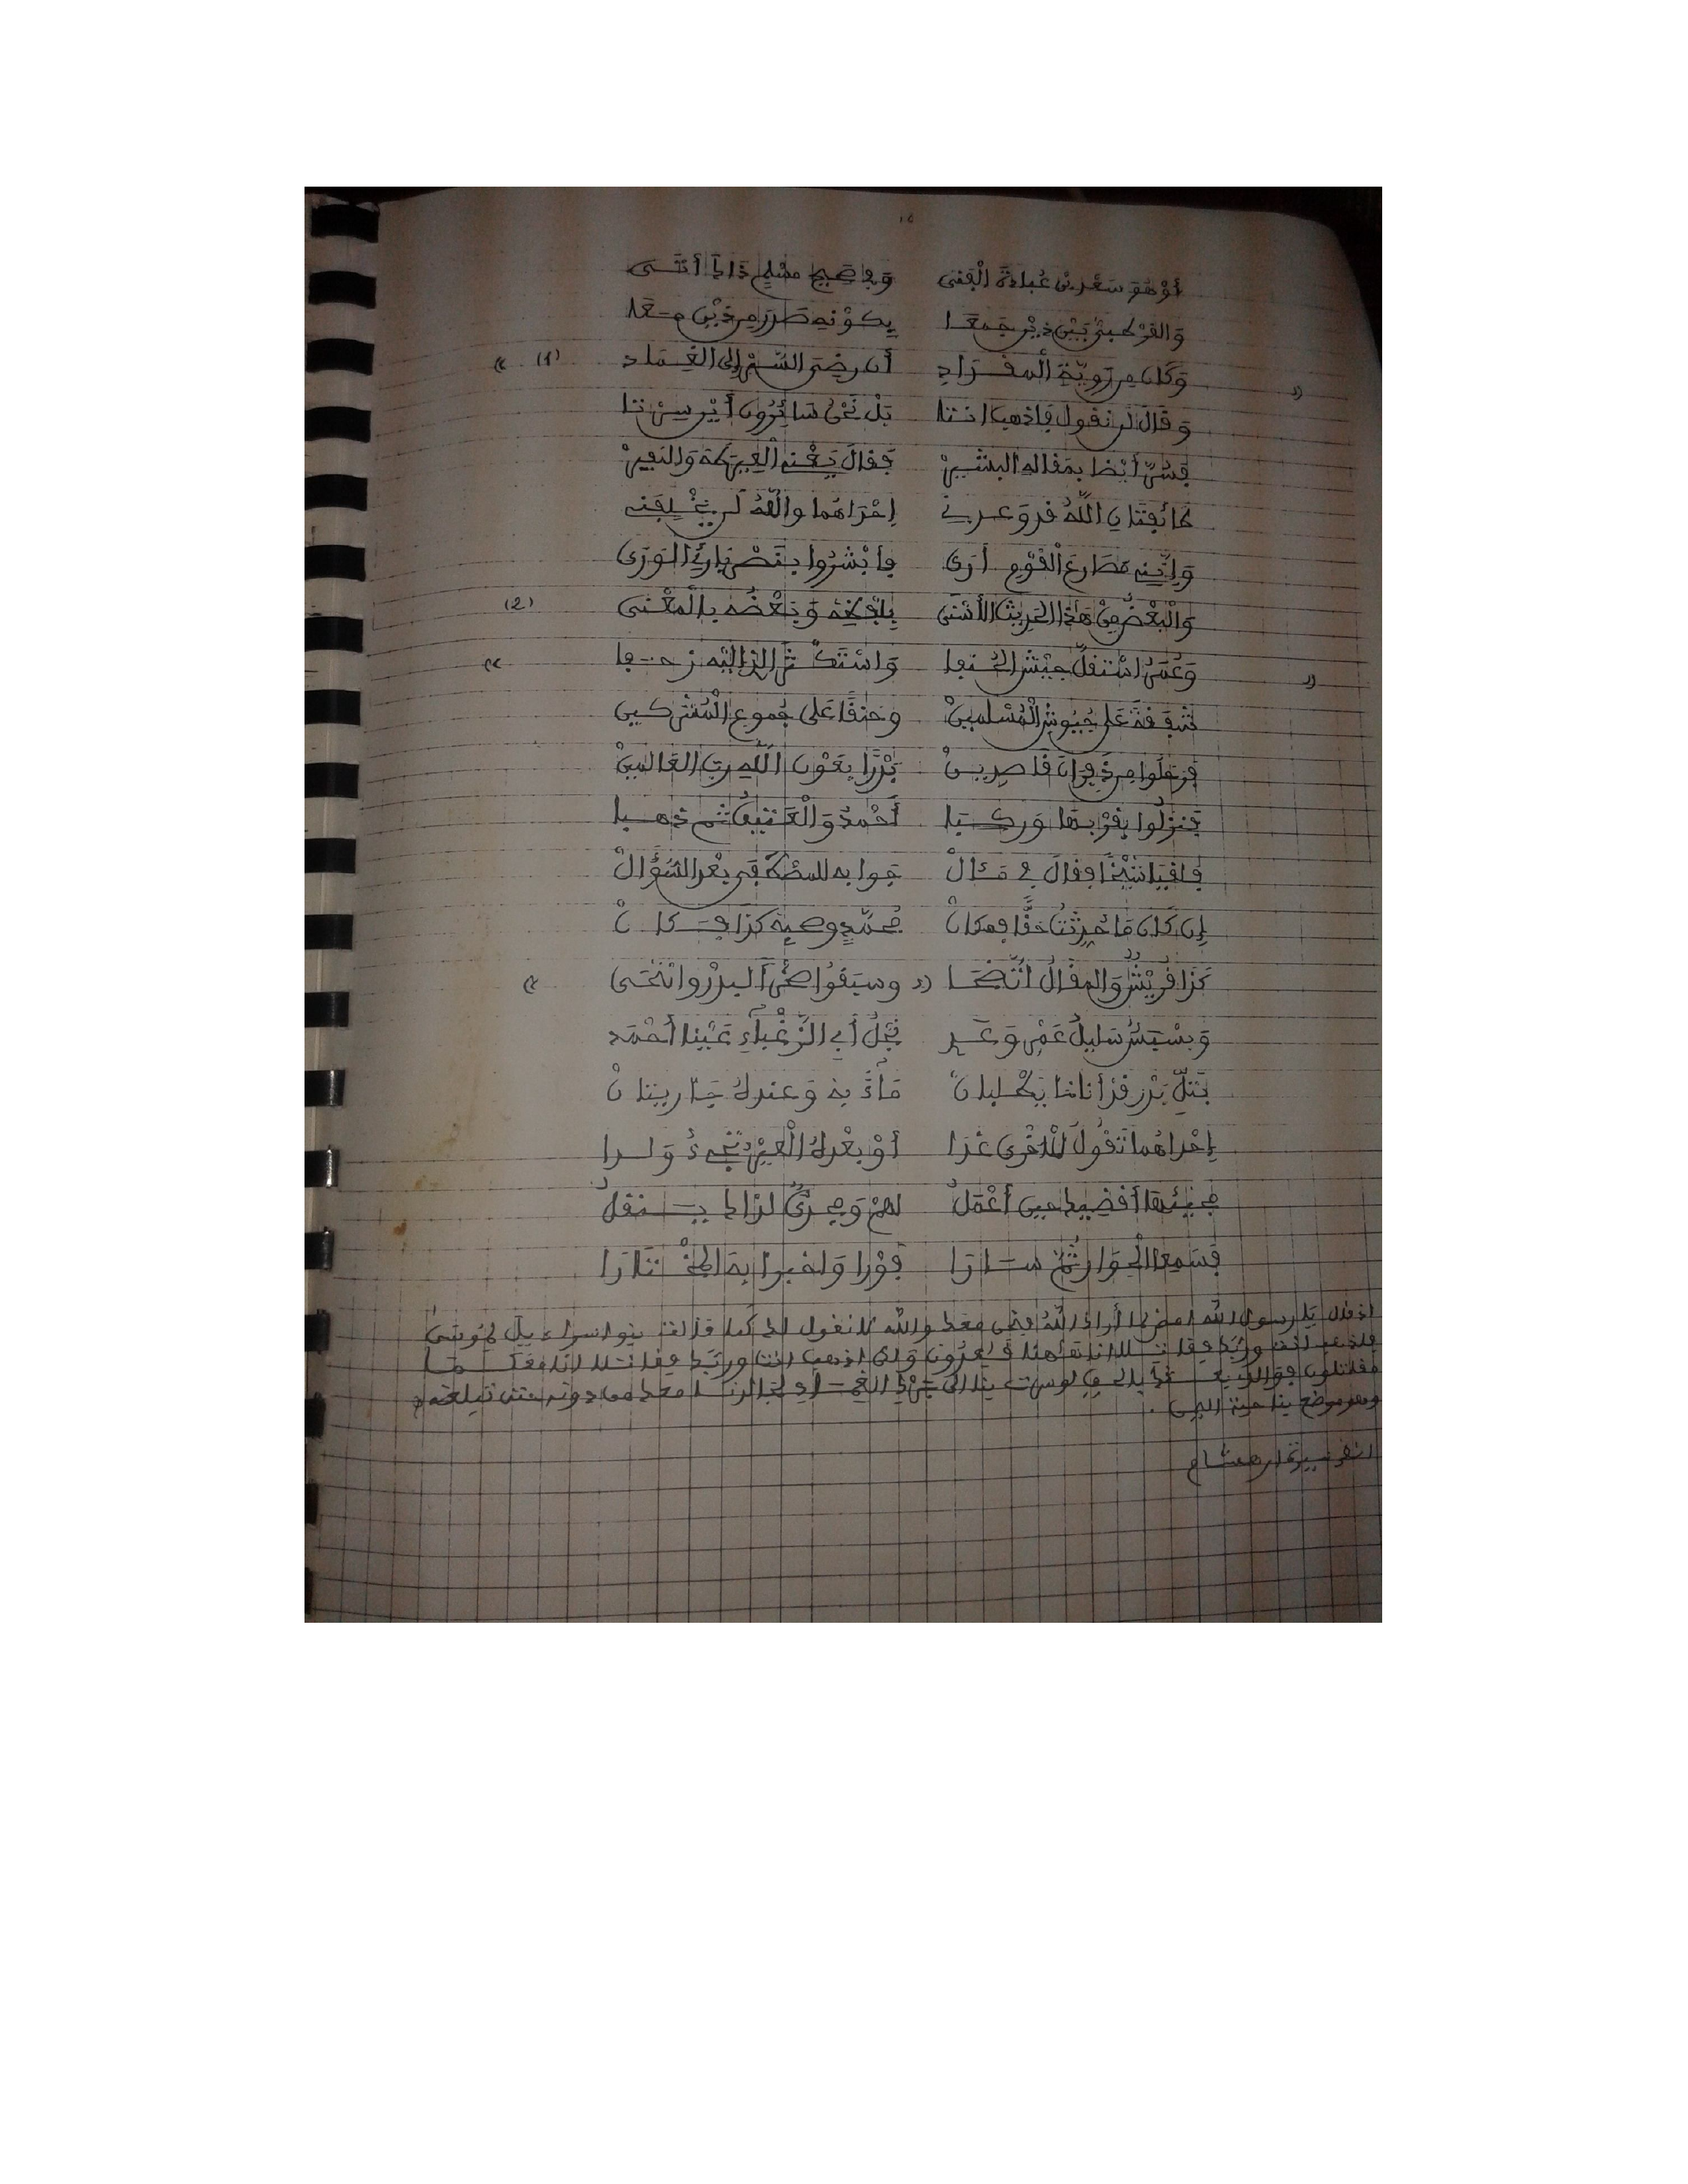 أَوْ هُوَ سَعْدُ بْنُ عُبَادَةَ الْفَتَى وَفِي صَحِيحِ مُسْلِمٍ ذَاكَ أَتَى
وَالقَوْلَتَيْنِ بَيْنَ ذَيْنِ جَمَعَا بِكَوْنِهِ صَدَرَ مِن ذَيْنِ مَعَا
وَكَانَ مِن رَوِيَّةِ الْمِقْدَادِ أَن رَضِيَ السَّيْرَ إِلَى الغِمَادِ (1)
وَقَالَ لَن نَقُولَ فَاذْهَبْ انْتَا بَلْ نَحْنُ سَائِرُونَ أَيْنَ سِرْتَا
فَسُرَّ أَيْضًا بِمَقَالِهِ البَشِيرْ فَقَالَ يَعْنِي الْعِيرَ مَكَّةَ وَالنَّفِيرْ
طَائِفَتَانِ اللَّهُ قَد وَعَدَنِي إِحْدَاهُمَا وَاللَّهُ لَن يُخْلِفَنِي
وَإِنَّنِي مَصَارِعَ الْقَوْمِ أَرَى فَأَبْشِرُوا بِنَصْرِ بَارِئِ الوَرَى
وَالْبَعْضُ مِنْ هَذَا الحَدِيثِ الأَسْنَى بِلَفْظِهِ وَبَعْضُهُ بِالْمَعْنَى (2)
وَعُمَرُ اسْتَقَلَّ جَيْشَ الحُنَفَا وَاسْتَكْثَرَ الذ إِلَيْهِ زَحَفَا
شَفَقَةً عَلَى جُيُوشِ الْمُسْلِمِينْ وَحَنَقًا عَلَى جُمُوعِ الْمُشْرِكِينْ
فَرَحَلُوا مِن ذَفِرَانَ قَاصِدِينْ بَدْرًا بِعَوْنِ اللَّهِ رَبِّ العَالَمِينْ
فَنَزَلُوا بِقُرْبِهَا وَرَكِبَا أَحْمَدُ وَالْعَتِيقُ ثُمَّ ذَهَبَا
فَلَقِيَا شَيْخًا فَقَالَ فِي مَقَالْ جَوَابِهِ لِلْمُصْطَفَى بَعْدَ السُّؤَالْ
إِن كَانَ مَا حُدِّثْتُ حَقًّا فَمَكَانْ مُحَمَّدٍ وَصَحْبِهِ كَذَا فَكَانْ
كَذَا قُرَيْشٌ وَالمَقَالُ اتَّضَحَا وَسَبَقُوا ضُحًى البَدْرِ وَانْتَحَى
وَبَسْبَسٌ سَلِيلُ عَمْرٍو وَعَدِي نَجْلُ أَبِي الزَّغْبَاءِ عَيْنَا أَحْمَدِ
بِتَلِّ بَدْرٍ قَدْ أَنَاخَا يَطْلُبَانْ مَاءً بِهِ وَعِنْدَهُ جَارِيَتَانْ
إِحْدَاهُمَا تَقُولُ لِلأُخْرَى غَدَا أَوْ بَعْدَهُ الْعِيرُ تَجِيءُ وَلَدَا
مَجِيئِهَا أَقْضِيكِ حِينَ أَعْمَلُ لَهُمْ وَمَجْدِيٌّ لِذَاكَ يَنْقُلُ
فَسَمِعَا الْحِوَارَ ثُمَّ سَارَا فَوْرًا وَاخْبَرَا بِهِ المُخْتَارَا
اذ قال يا رسول الله امض لما أراك الله فنحن معك والله لا نقول لك كما قالت بنو اسراءيل لموسى
فاذهب انت وربك فقاتلا انا هاهنا قاعدون ولكن اذهب انت وربك فقاتلا انا معكما
مقاتلون فوالذي بعثك بالحق لو سرت بنا الى برك الغماد لجالدنا معك من دونه حتى تبلغه
وهو موضع بناحية اليمن .
انظر سيرة ابن هشام